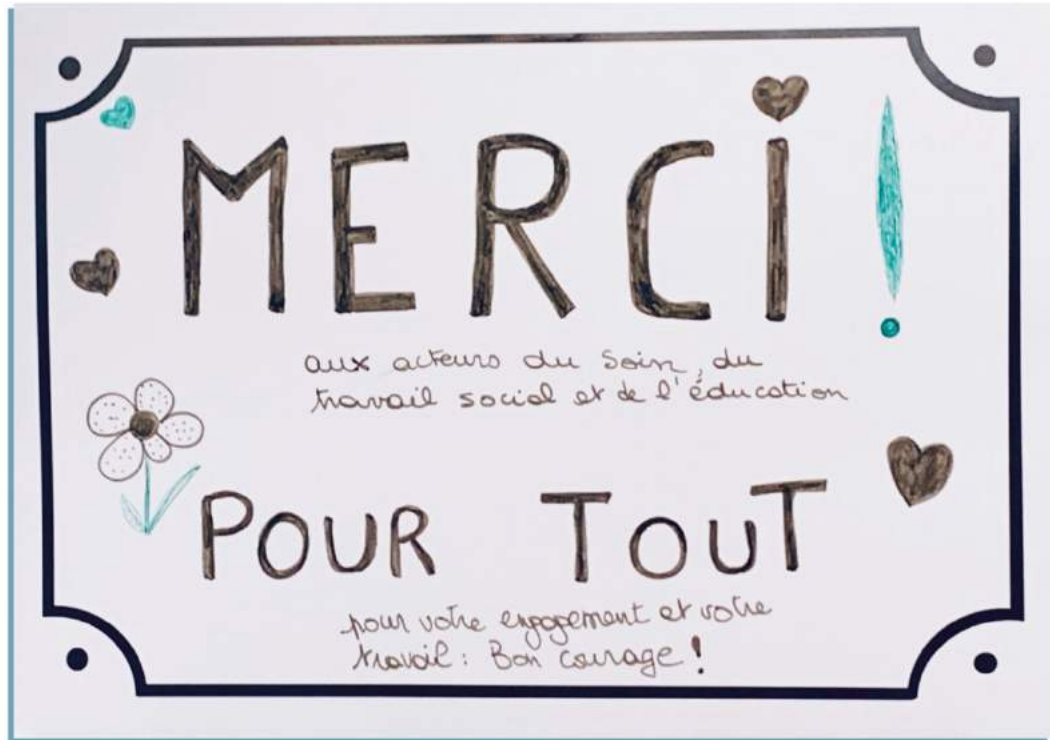 MERCi !
aux acteurs du soin, du
travail social et de l'éducation
POUR TOUT
pour votre engagement et votre
travail : Bon courage !